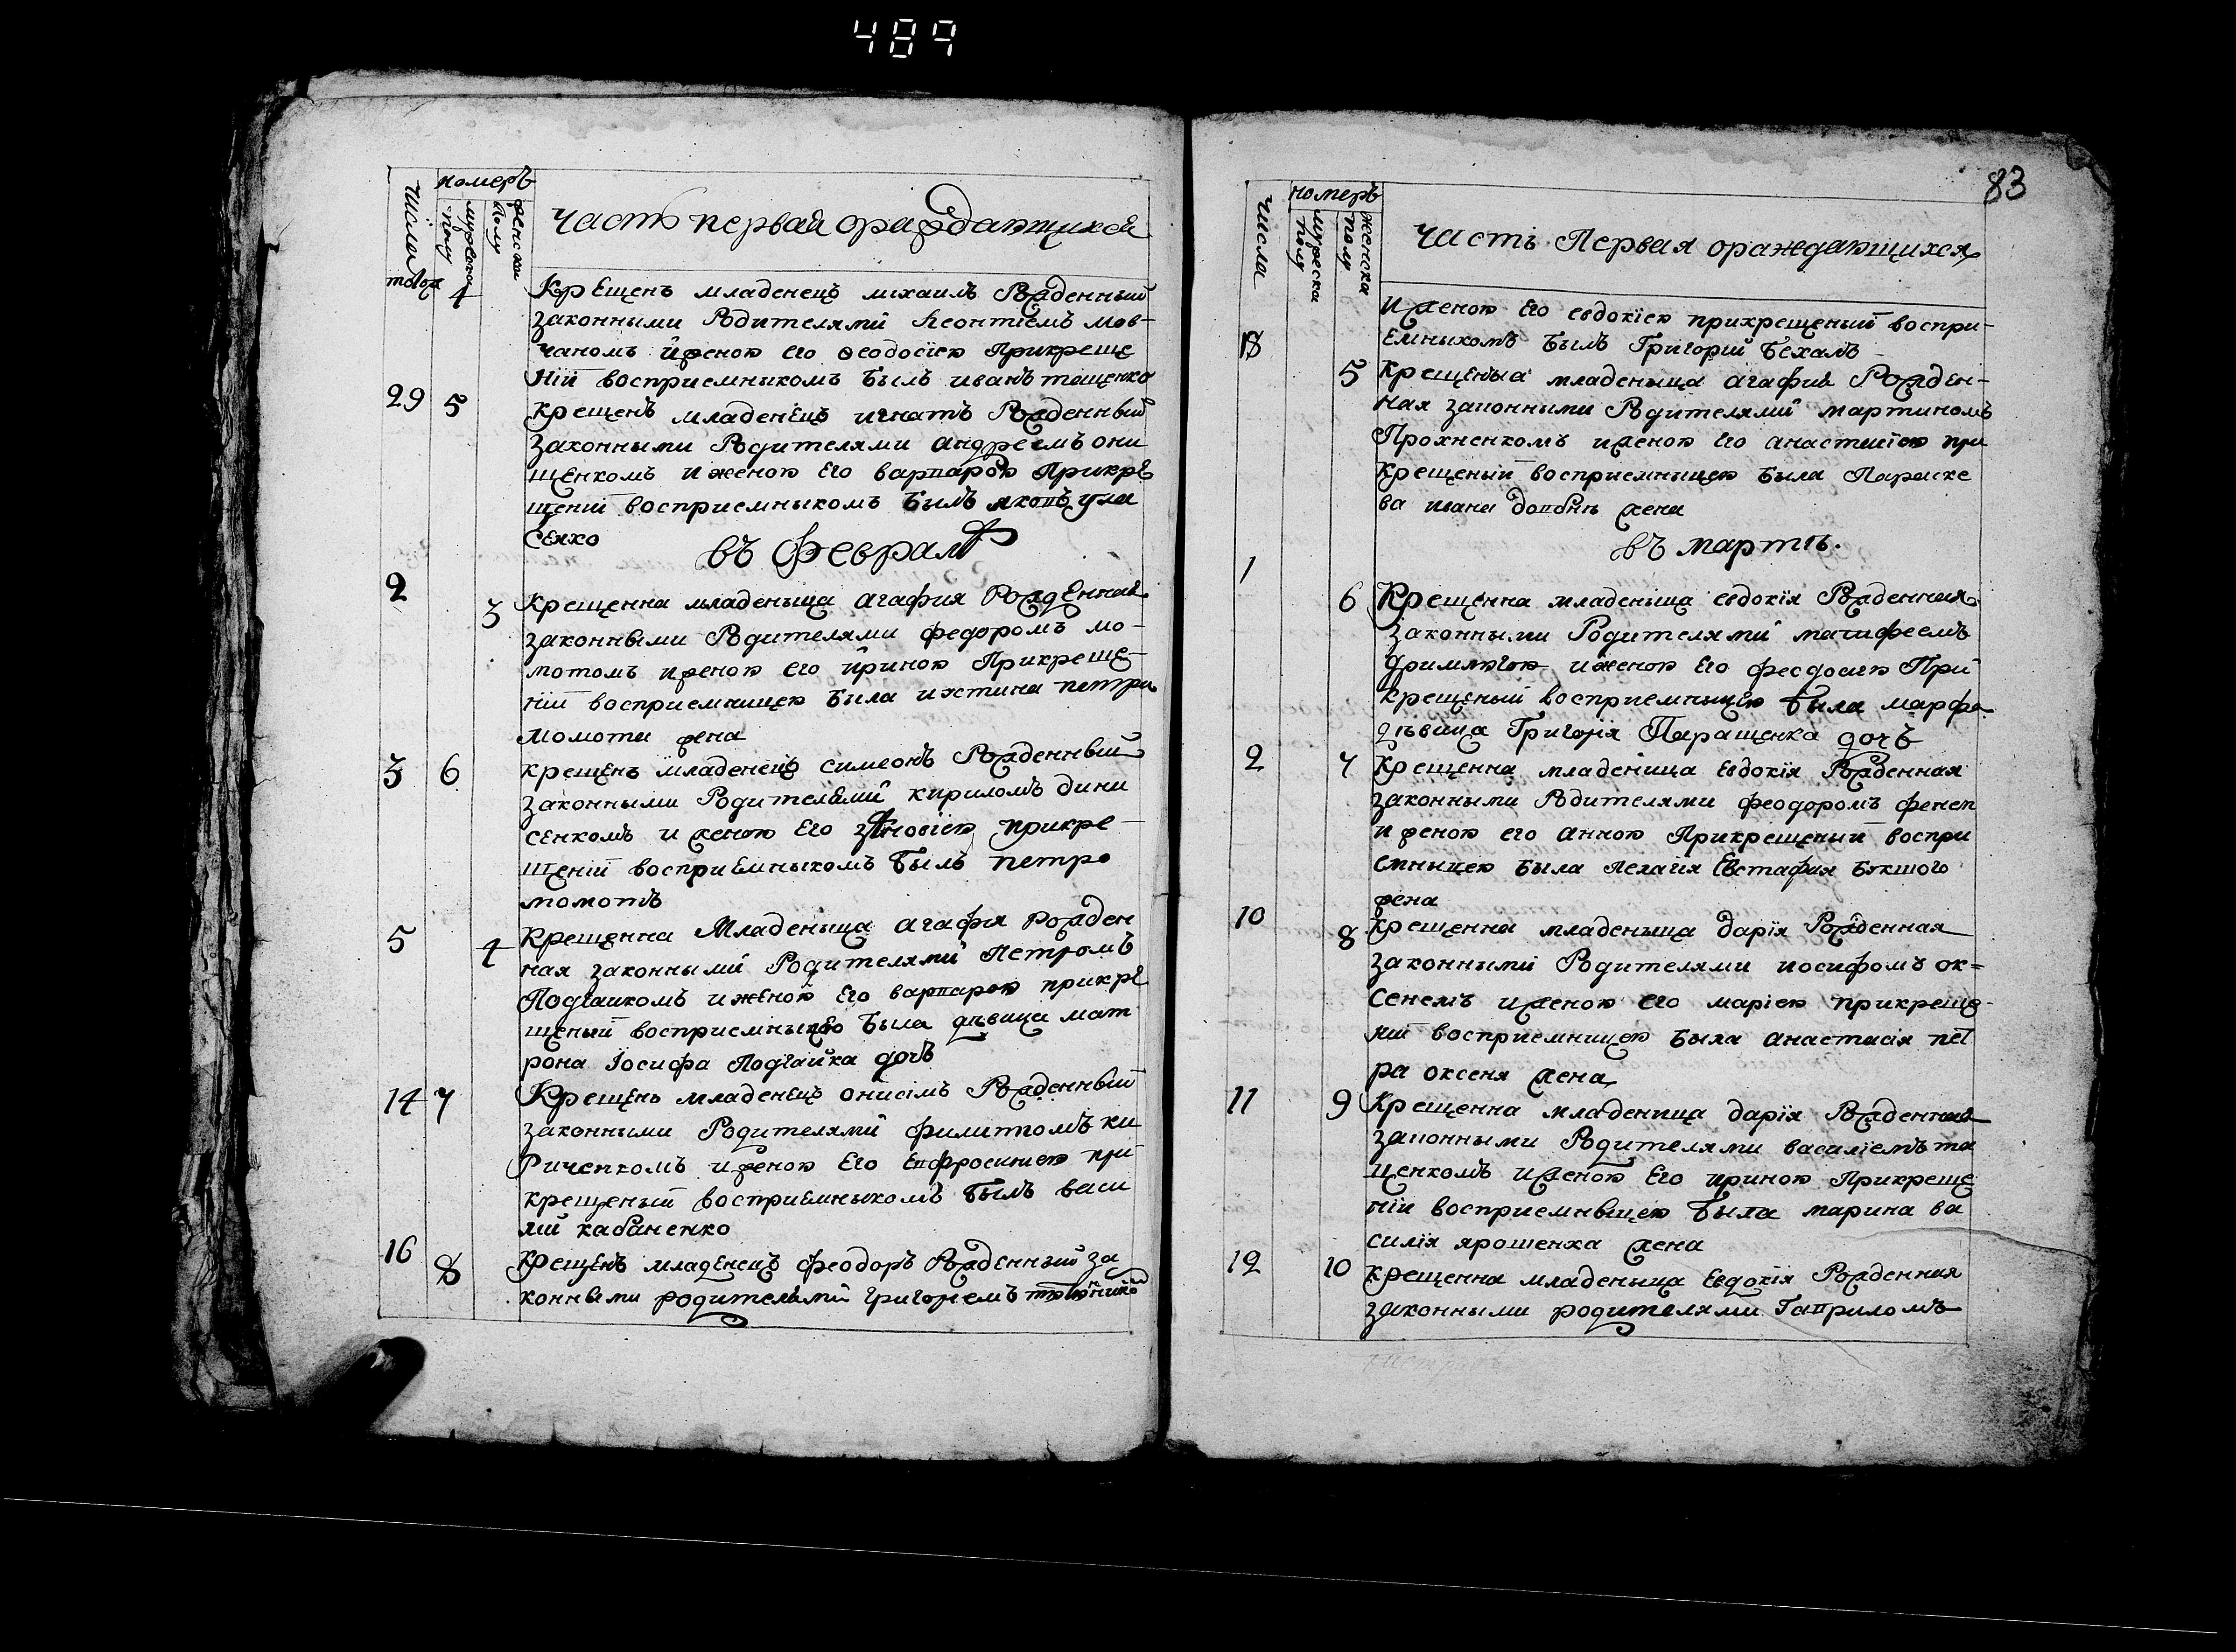 489
номеръ
числа
мужеска полу
женска полу
часть первая ораждающихся
тогож 4 Крещенъ младенецъ михаилъ Рожденный
законными Родителями леонтіемъ мов-
чаномъ и женою его ѳеодосіею Прикреще
ніи восприемникомъ былъ иванъ тащенко
29 5 крещенъ младенецъ игнатъ Рожденный
законными Родителями андреемъ они
щенкомъ и женою его варварою Прикре
щеніи восприемныкомъ былъ яковъ ула
сенко
въ Февралѣ
2 3 крещенна младеныца агафия Рожденная
законными Родителями федоромъ мо-
мотомъ и женою его йриною Прикреще-
ніи восприемницею была иустина петра
момоти жена
3 6 крещенъ младенецъ симеонъ Рожденный
законными Родителями кириломъ дини
сенкомъ и женою его зѣновіею прикре-
щеніи восприемныкомъ былъ петро
момотъ
5 4 крещенна Младеныца агафия рожден
ная законными Родителями Петромъ
Подгайкомъ и женою его варварою прикре
щеный восприемныцею была дѣвица мат
рона Іосифа Подгайка дочъ
14 7 Крещенъ младенецъ онисімъ Рожденный
законными Родителями филиппомъ ки
риченкомъ и женою его евфросиниею при
крещеный восприемныкомъ былъ васи
лій кабаненко
16 8 крещенъ младенецъ феодоръ Рожденный за
конными родителями григориемъ
83
номеръ
числа
мужеска полу
женска полу
часть Первая ораждающихся
и женою его евдокіею прикрещеный воспри-
емныкомъ былъ Григорій бехалъ
18 5 крещеныа младеныца агафия Рожден-
ная законными Родителями мартиномъ
Прохненкомъ и женою его анастасіею при
крещеній восприемныцею была Параске
ва ивана жена
въ мартѣ.
1 6 Крещенна младеныца евдокія Рожденная
законными Родителями матифеемъ
дримлюгою и женою его феодосиею При
крещеный восприемныцею была марфа
дѣвица Григорія Паращенка дочъ
2 7 крещенна младеница евдокія Рожденная
законными Родителями феодоромъ
и женою его анною Прикрещеный воспри
емныцею была пелагія Евстафия
жена
10 8 крещенна младеныца дарія Рожденная
законными Родителями иосифомъ ок-
сенемъ и женою его маріею прикреще-
ній восприемницею была анастасія пет
ра оксеня жена
11 9 крещенна младеница дарїя Рожденная
законными Родителями василіемъ та
щенкомъ и женою его ириною Прикреще
нїи восприемныцею была марина ва
силія ярошенка жена
12 10 крещенна младеныца евдокія Рожденная
законными родителями Гавриломъ